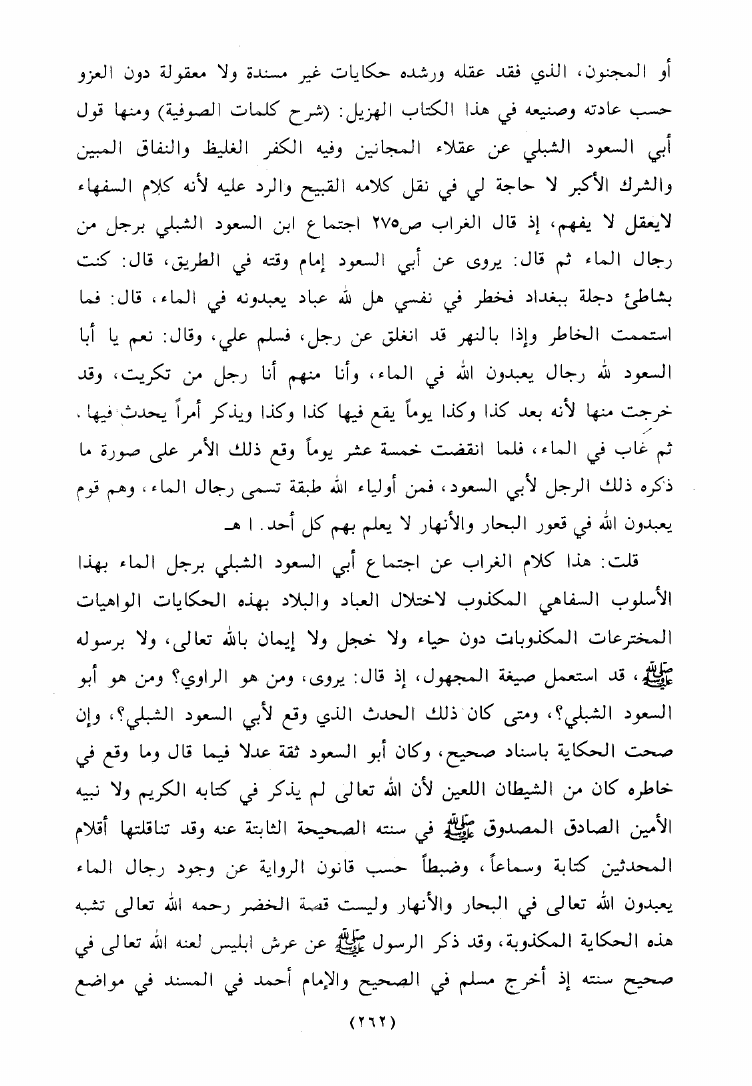 أو المجنون، الذي فقد عقله ورشده حكايات غير مسندة ولا معقولة دون العزو
حسب عادته وصنيعه في هذا الكتاب الهزيل: (شرح كلمات الصوفية) ومنها قول
أبي السعود الشبلي عن عقلاء المجانين وفيه الكفر الغليظ والنفاق المبين
والشرك الأكبر لا حاجة لي في نقل كلامه القبيح والرد عليه لأنه كلام السفهاء
لايعقل لا يفهم، إذ قال الغراب ص٢٧٥ اجتماع ابن السعود الشبلي برجل من
رجال الماء ثم قال: يروى عن أبي السعود إمام وقته في الطريق، قال: كنت
بشاطئ دجلة ببغداد فخطر في نفسي هل لله عباد يعبدونه في الماء، قال: فما
استممت الخاطر وإذا بالنهر قد انغلق عن رجل، فسلم علي، وقال: نعم يا أبا
السعود لله رجال يعبدون الله في الماء، وأنا منهم أنا رجل من تكريت، وقد
خرجت منها لأنه بعد كذا وكذا يوماً يقع فيها كذا وكذا ويذكر أمراً يحدث فيها.
ثم غاب في الماء، فلما انقضت خمسة عشر يوماً وقع ذلك الأمر على صورة ما
ذكره ذلك الرجل لأبي السعود، فمن أولياء الله طبقة تسمى رجال الماء، وهم قوم
يعبدون الله في قعور البحار والأنهار لا يعلم بهم كل أحد. ا هـ
قلت: هذا كلام الغراب عن اجتماع أبي السعود الشبلي برجل الماء بهذا
الأسلوب السفاهي المكذوب لاختلال العباد والبلاد بهذه الحكايات الواهيات
المخترعات المكذوبات دون حياء ولا خجل ولا إيمان بالله تعالى، ولا برسوله
ﷺ، قد استعمل صيغة المجهول، إذ قال: يروى، ومن هو الراوي؟ ومن هو أبو
السعود الشبلي؟، ومتى كان ذلك الحدث الذي وقع لأبي السعود الشبلي؟، وإن
صحت الحكاية باسناد صحيح، وكان أبو السعود ثقة عدلا فيما قال وما وقع في
خاطره كان من الشيطان اللعين لأن الله تعالى لم يذكر في كتابه الكريم ولا نبيه
الأمين الصادق المصدوق ﷺ في سنته الصحيحة الثابتة عنه وقد تناقلتها أقلام
المحدثين كتابة وسماعاً، وضبطاً حسب قانون الرواية عن وجود رجال الماء
يعبدون الله تعالى في البحار والأنهار وليست قصة الخضر رحمه الله تعالى تشبه
هذه الحكاية المكذوبة، وقد ذكر الرسول ﷺ عن عرش ابليس لعنه الله تعالى في
صحيح سنته إذ أخرج مسلم في الصحيح والإمام أحمد في المسند في مواضع
(٢٦٢)